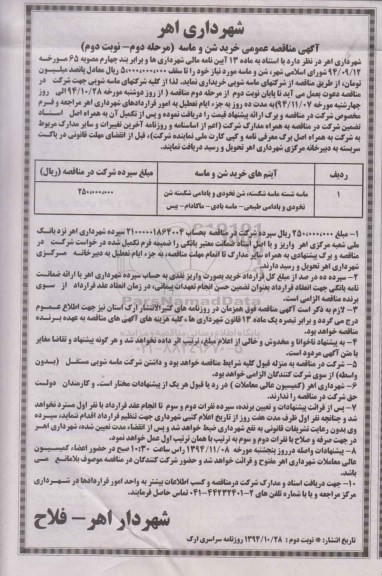 شهرداری اهر
آگهی مناقصه عمومی خرید شن و ماسه (مرحله دوم– نوبت دوم)
شهرداری اهر در نظر دارد با استناد به ماده ۱۳ آیین نامه مالی شهرداری ها و برابر بند چهارم مصوبه ۶۵ مورخه
۹۴/۰۹/۱۲ شورای اسلامی شهر، شن و ماسه مورد نیاز خود را تا سقف ۵۰۰۰,۰۰۰,۰۰۰ ریال معادل پانصد میلیون
تومان، از طریق مناقصه از شرکتهای ماسه شویی خریداری نماید. لذا از کلیه شرکتهای ماسه شویی جهت شرکت در
مناقصه دعوت بعمل می آید تا پایان نوبت دوم از مرحله دوم مناقصه ( از روز دوشنبه مورخه ۹۴/۱۰/۲۸ الی روز
چهارشنبه مورخه ۹۴/۱۱/۰۷) به مدت ده روز به جزء ایام تعطیل به امور قراردادهای شهرداری اهر مراجعه و فرم
مخصوص شرکت در مناقصه و برگ ارائه پیشنهاد قیمت را دریافت نموده و پس از تکمیل آن به همراه اصل اسناد
تضمین شرکت در مناقصه به همراه مدارک شرکت (اعم از اساسنامه و روزنامه آخرین تغییرات و سایر مدارک مربوط
به شرکت به همراه اصل برگ معرفی نامه و کپی کارت ملی نماینده شرکت)، قبل از انقضای مهلت قانونی در پاکت
سربسته به دبیرخانه مرکزی شهرداری اهر تحویل و رسید دریافت نمایند.
ردیف آیتم های خرید شن و ماسه مبلغ سپرده شرکت در مناقصه (ریال)
۱ ماسه شسته ماسه شکسته، شن نخودی و بادامی شکسته شن ۲۵۰,۰۰۰,۰۰۰
نخودی و بادامی طبیعی- ماسه بادی- ماکادام- بیس
۱– مبلغ ۲۵۰,۰۰۰,۰۰۰ ریال سپرده شرکت در مناقصه بحساب ۲۱۰۰۰۰۰۱۸۶۲۰۰۲ سپرده شهرداری اهر نزد بانک
ملی شعبه مرکزی اهر واریز و یا اصل اسناد ضمانت معتبر بانکی را ضمیمه فرم تکمیل شده در خواست شرکت در
مناقصه و برگ پیشنهادی به همراه سایر مدارک تا اتمام مهلت مناقصه، به جزء ایام تعطیل به دبیرخانه مرکزی
شهرداری اهر تحویل و رسید دارند.
۲– سپرده ده در صد از مبلغ کل قرارداد خرید بصورت واریز نقدی به حساب سپرده شهرداری اهر یا ارائه ضمانت
نامه بانکی جهت انعقاد قرارداد بعنوان تضمین حسن انجام تعهدات پیمانی، در زمان انعقاد قرارداد از سوی
برنده مناقصه الزامی است.
۳– لازم به ذکر است آگهی مناقصه فوق همزمان در روزنامه های کثیرالانتشار ارک استان نیز جهت اطلاع عموم
درج می گردد و برابر تبصره یک ماده ۱۳ قانون شهرداری ها ، کلیه هزینه های آگهی های مناقصه به عهده برنده
مناقصه خواهد بود.
۴– به پیشنهاد ناخوانا و مخدوش و خالی از اعلام مبلغ، ترتیب اثر داده نخواهد شد و هر گونه پیشنهاد و تقاضا مغایر
با متن آگهی مردود است.
۵– شرکت در مناقصه به منزله قبول کلیه شرایط مناقصه خواهد بود و داشتن شرکت ماسه شویی مستقل (بدون
واسطه) از سوی شرکت کنندگان الزامی خواهد بود.
۶– شهرداری اهر (کمیسیون عالی معاملات ) در رد یا قبول هر یک از پیشنهادات مختار است. و کارمندان دولت
حق شرکت در مناقصه را ندارند.
۷– پس از قرائت پیشنهادات و تعیین برنده، سپرده نفرات دوم و سوم تا انجام عقد قرارداد با نفر اول مسترد نخواهد
شد و چنانچه نفر اول ظرف مدت هفت روز از تاریخ اعلام کتبی شهرداری جهت تنظیم قرارداد اقدام ننماید، سپرده
وی بدون رعایت تشریفات قانونی به نفع شهرداری ضبط خواهد شد و پس از انقضاء مدت تعیین شده، شهرداری اهر
در جهت صرفه و صلاح با نفرات دوم و سوم به ترتیب با همان ترتیب اول عمل خواهد نمود.
۸– پیشنهادات واصله درروز پنجشنبه مورخه ۱۳۹۴/۱۱/۰۸ راس ساعت ۱۰:۳۰ صبح در حضور اعضاء کمیسیون
عالی معاملات شهرداری اهر مفتوح و قرائت خواهد شد و حضور شرکت کنندگان در مناقصه موصوف بلامانع می
باشد.
۱۰– جهت دریافت اسناد و مدارک شرکت درمناقصه و کسب اطلاعات بیشتر به واحد امور قراردادها در شهرداری
مرکز مراجعه و یا با شماره تلفن های ۲–۴۴۲۳۲۴۰۱–۰۴۱ تماس حاصل فرمایند.
شهردار اهر– فلاح
تاریخ انتشار: * نوبت دوم : ۱۳۹۴/۱۰/۲۸ روزنامه سراسری ارک
ParsNamadData